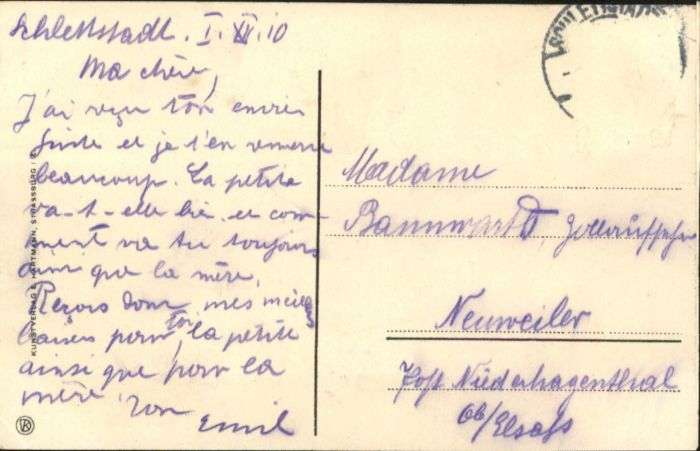 Schlettstadt. I. XI. 10
Ma chère,
J'ai reçu ton
et je t'en remercie
beaucoup. La petite
va-t-elle bien et com-
ment vas tu toujours
ainsi que la mère.
Reçois donc mes meilleurs
baisers pour toi, la petite
ainsi que pour la
mère. Ton
Emil
KUNSTVERLAG HARTMANN, STRASSBURG
Madame
Bannwarth, Zollaufseher
Neuweiler
Post Niederhagenthal
Ob/Elsass